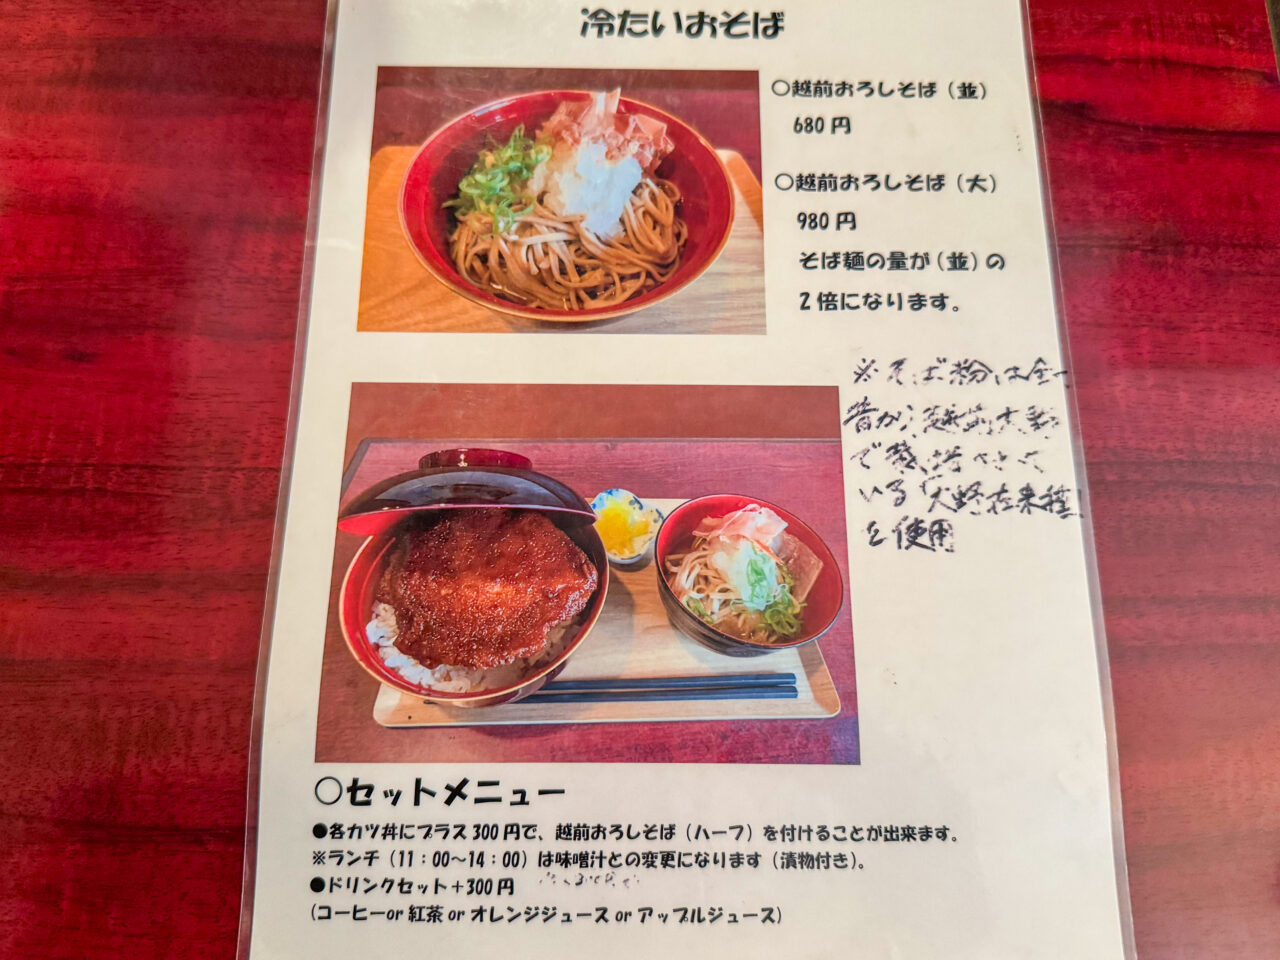 冷たいおそば
○越前おろしそば（並）
680円
○越前おろしそば（大）
980円
そば麺の量が（並）の
2倍になります。
※そば粉は全て
昔から越前大野
で栽培されて
いる「大野在来種」
を使用
○セットメニュー
●各カツ丼にプラス300円で、越前おろしそば（ハーフ）を付けることが出来ます。
※ランチ（11：00～14：00）は味噌汁との変更になります（漬物付き）。
●ドリンクセット＋300円
(コーヒーor 紅茶 or オレンジジュース or アップルジュース)